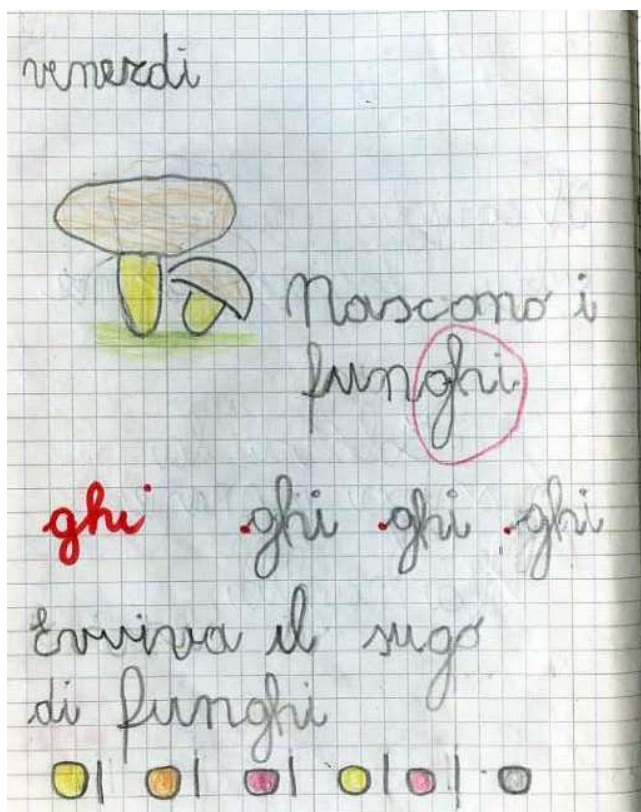 venerdi
Nascono i
funghi
ghi ghi ghi ghi
Evviva il sugo
di funghi